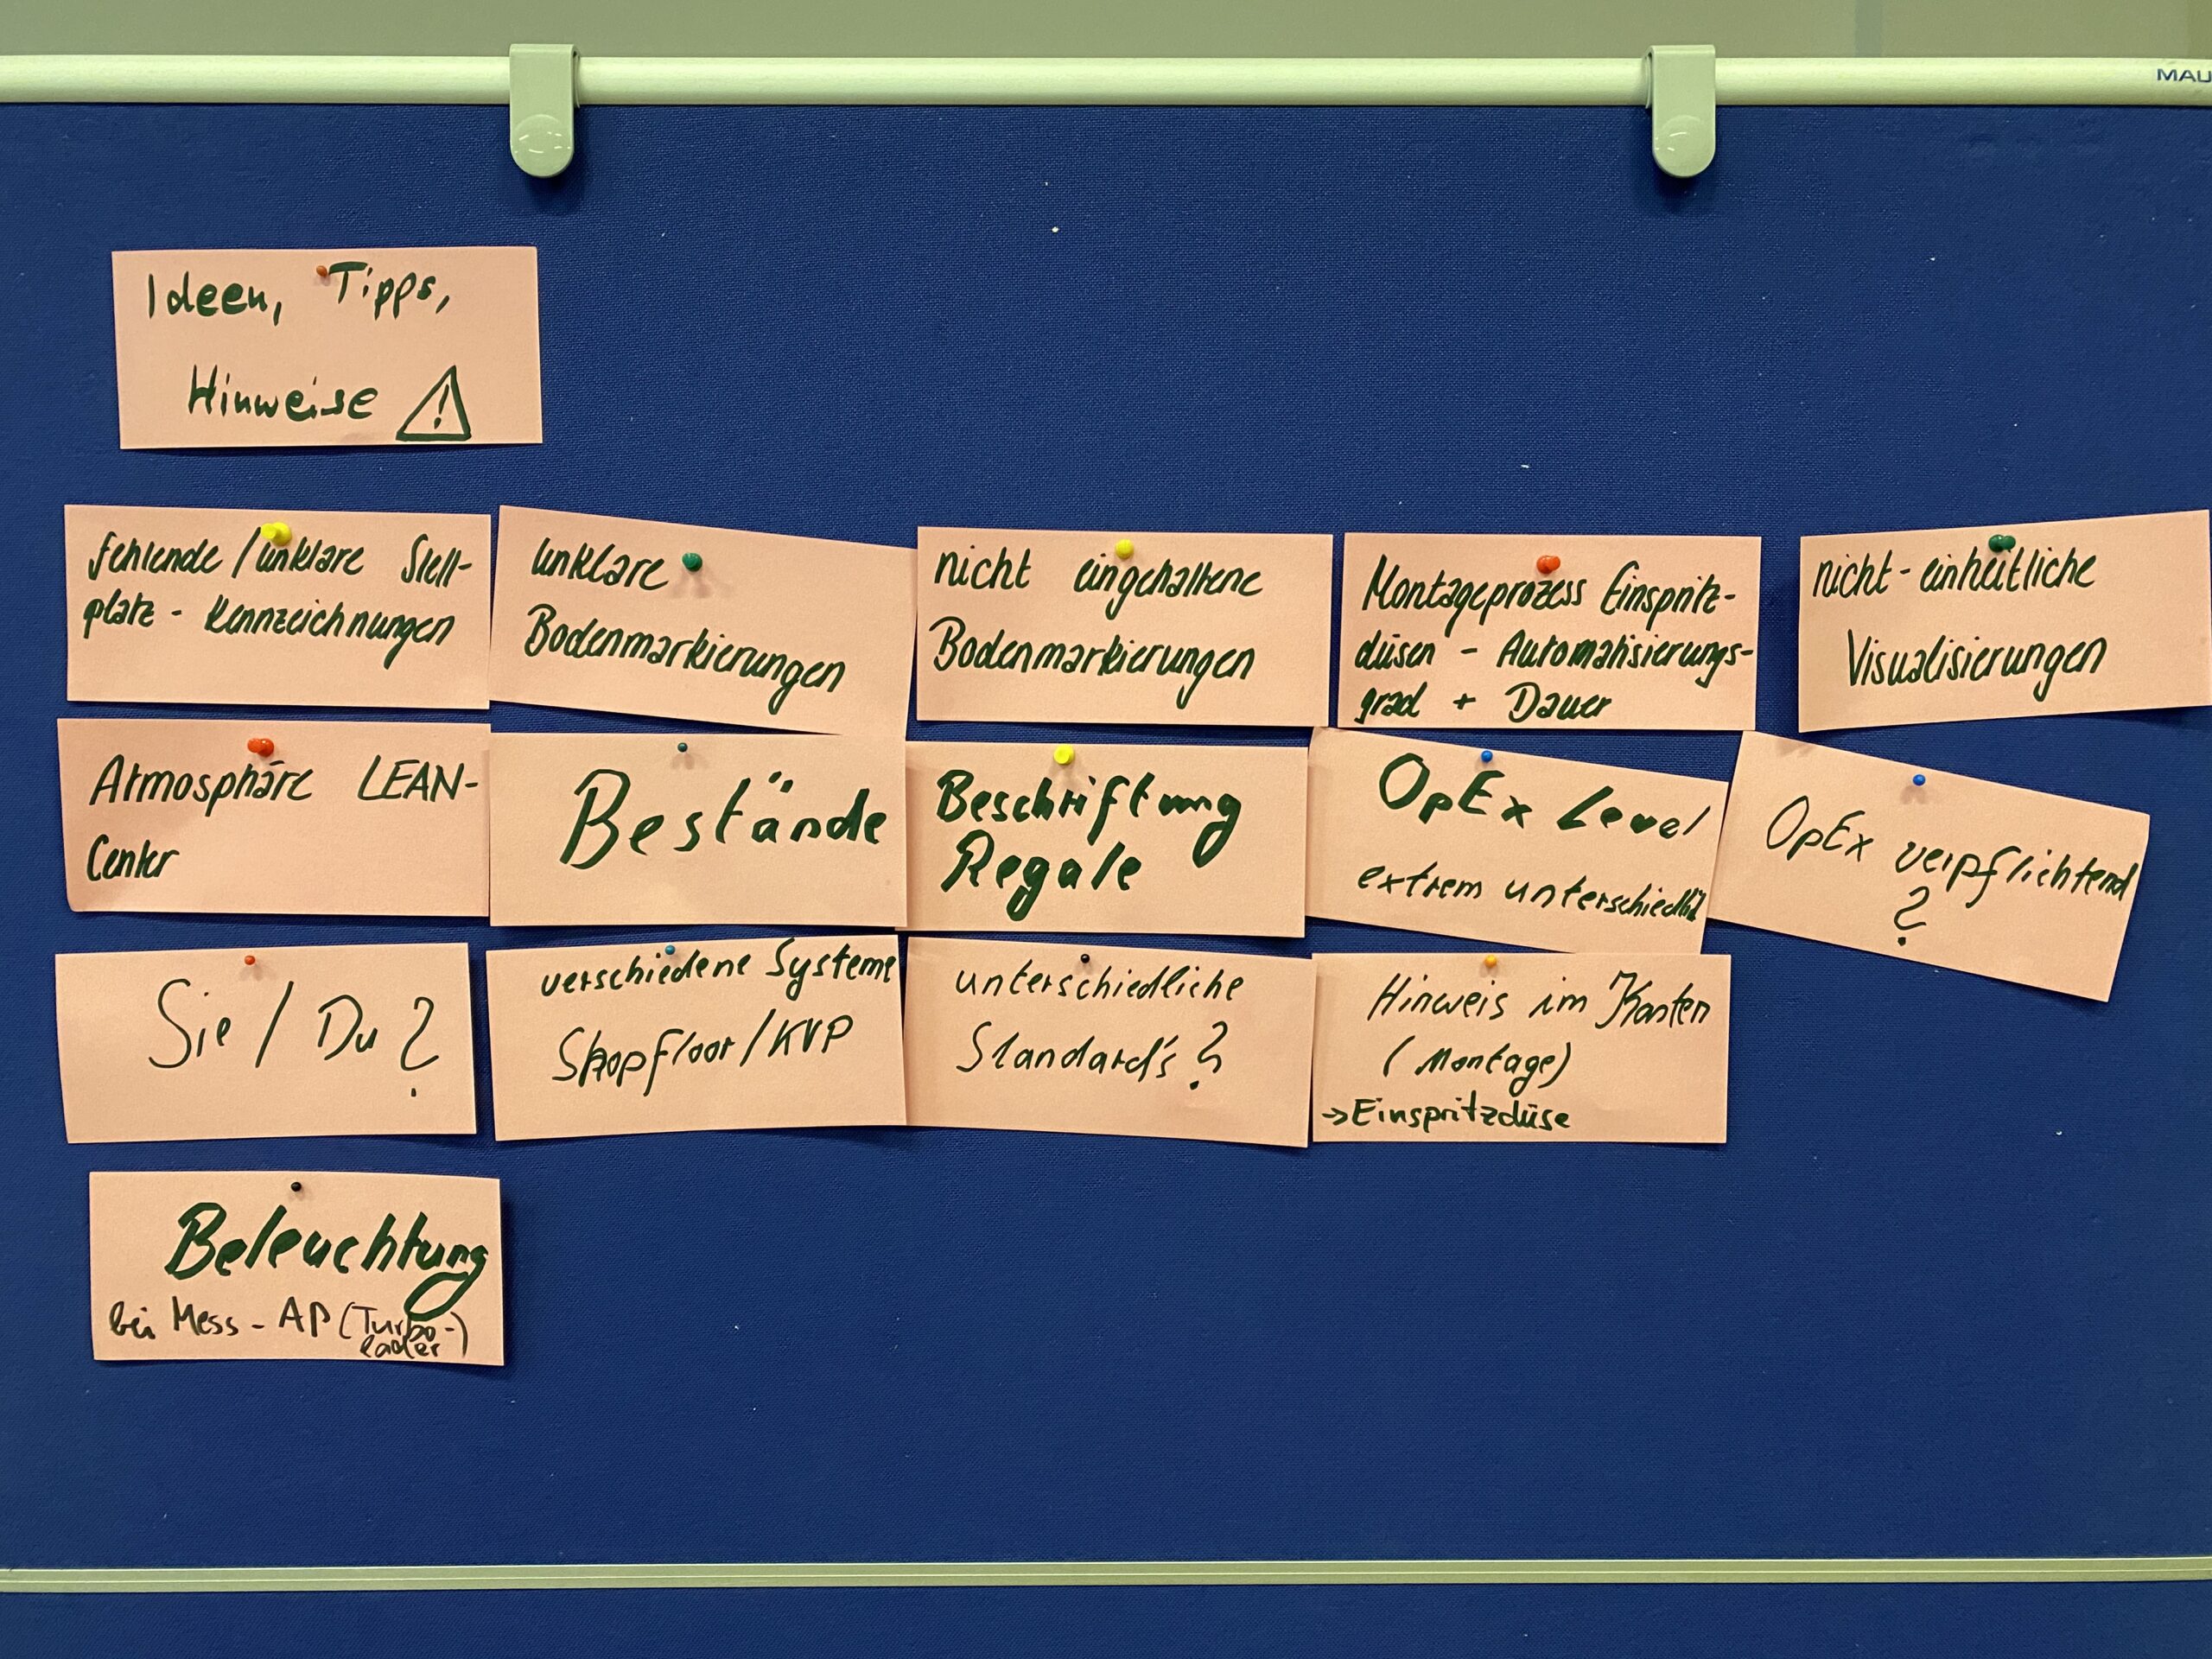 MAU
Ideen, Tipps,
Hinweise
fehlende / unklare Stell-
platz - Kennzeichnungen
unklare
Bodenmarkierungen
nicht eingehaltene
Bodenmarkierungen
Montageprozess Einspritz-
düsen - Automatisierungs-
grad + Dauer
nicht-einheitliche
Visualisierungen
Atmosphäre LEAN-
Center
Bestände
Beschriftung
Regale
OpEx Level
extrem unterschiedlich
OpEx verpflichtend
?
Sie / Du?
verschiedene Systeme
Shopfloor / KVP
unterschiedliche
Standard's?
Hinweis im Kasten
(Montage)
→ Einspritzdüse
Beleuchtung
bei Mess-AP (Turbo-
lader)